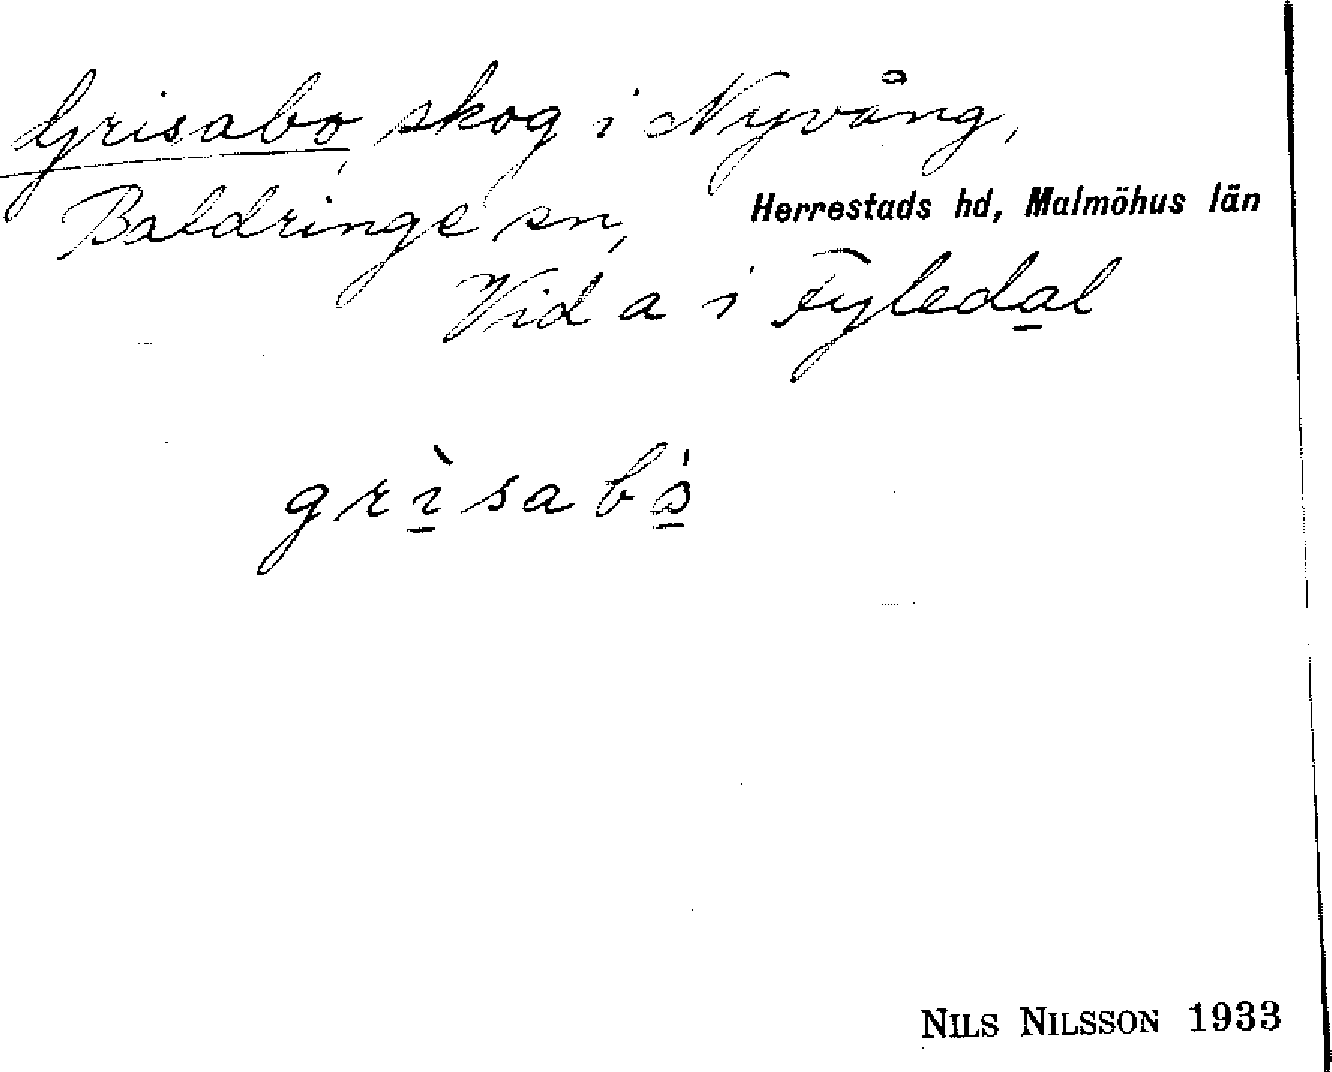 Grisabo, skog i Nyvång,
Baldringe sn, Herrestads hd, Malmöhus län
Vid a i Fyledal
grìsabó
NILS NILSSON 1933